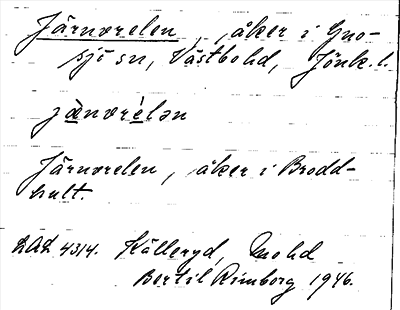 Järnvrelen, åker i Gno-
sjö sn, Västbo hd, Jönk. l.
jä̀nvrélən
Järnvrelen, åker i Brodd-
hult.
LAL 4314. Källeryd, Mo hd
Bertil Rimborg 1946.